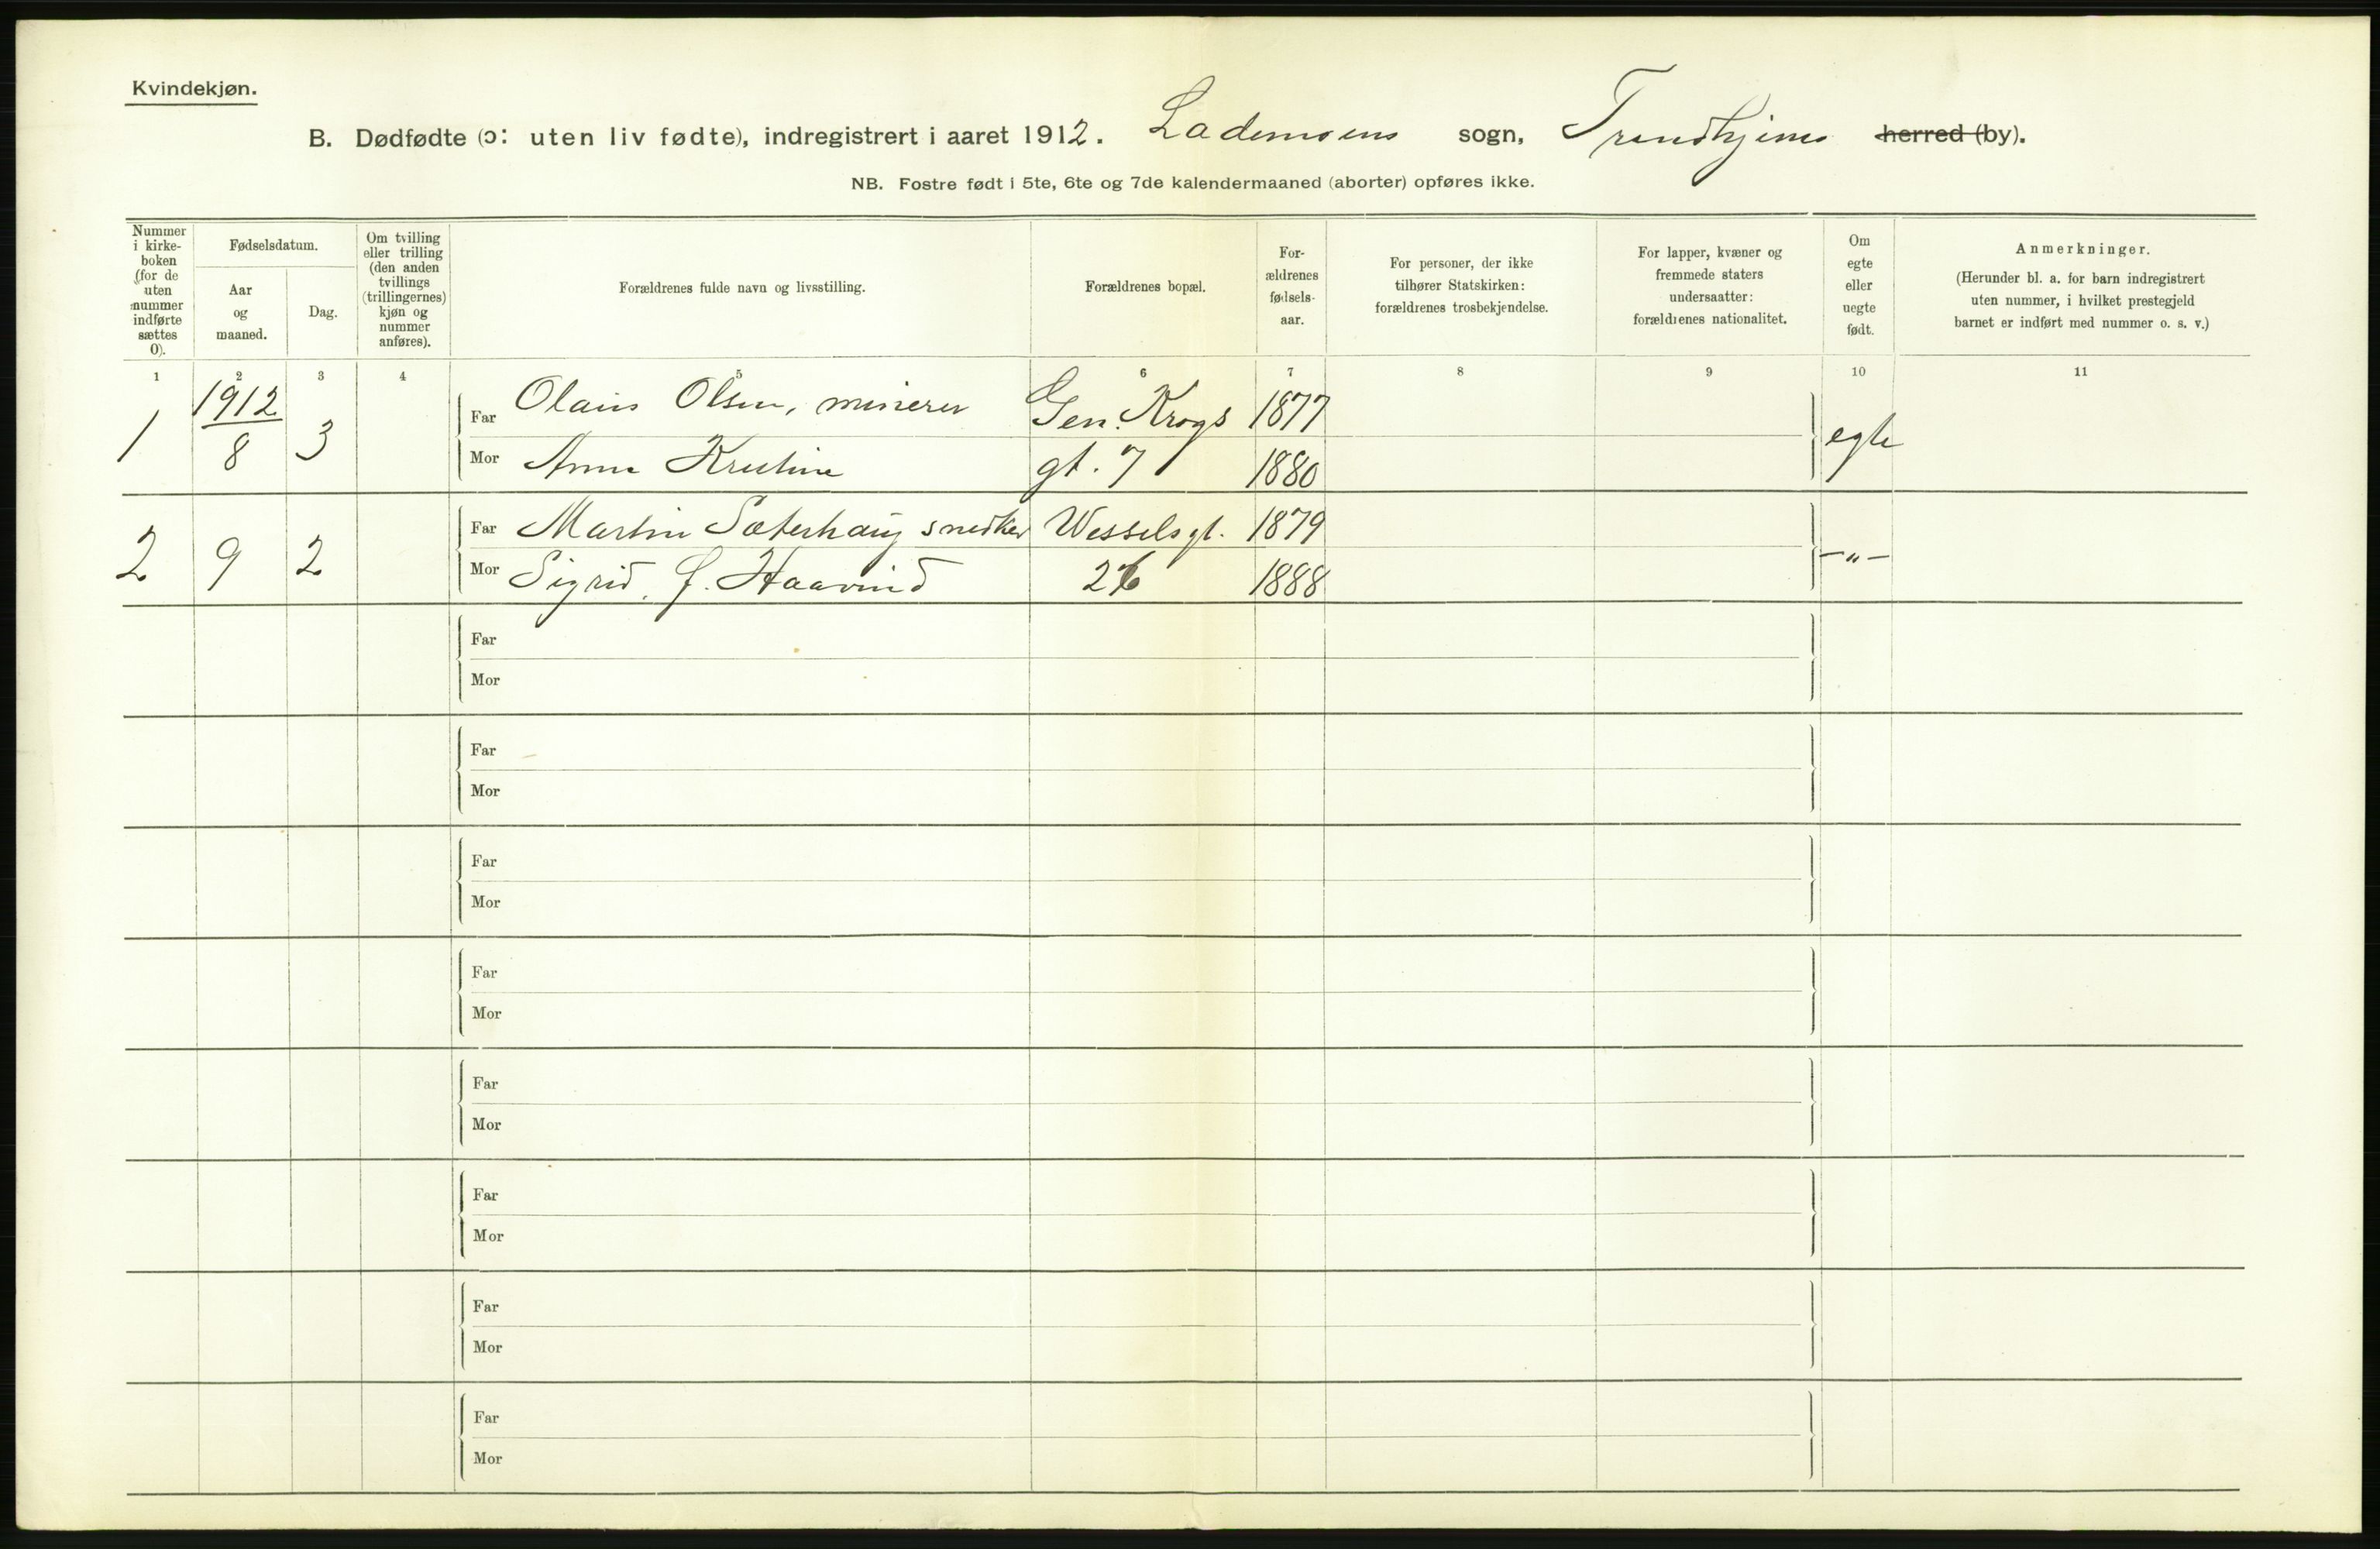 Kvindekjøn.
B. Dødfødte (ɔ: uten liv fødte), indregistrert i aaret 1912. Lademoens sogn, Trondhjems herred (by).
NB. Fostre født i 5te, 6te og 7de kalendermaaned (aborter) opføres ikke.
Nummer i kirke-boken (for de uten nummer indførte sættes 0).
Fødselsdatum.
Aar og maaned.
Dag.
Om tvilling eller trilling (den anden tvillings (trillingernes) kjøn og nummer anføres).
Forældrenes fulde navn og livsstilling.
Forældrenes bopæl.
For-ældrenes fødsels-aar.
For personer, der ikke tilhører Statskirken: forældrenes trosbekjendelse.
For lapper, kvæner og fremmede staters undersaatter: forældrenes nationalitet.
Om egte eller uegte født.
Anmerkninger.
(Herunder bl. a. for barn indregistrert uten nummer, i hvilket prestegjeld barnet er indført med nummer o. s. v.)
1 2 3 4 5 6 7 8 9 10 11
1 1912/8 3 Far Olaus Olsen, minerer Gen. Krogs 1877 egte
Mor Anna Kristine gt. 7 1880
2 9 2 Far Martin Sæterhaug snedker Wesselsgt. 1879 -"-
Mor Sigrid. J. Haavind 26 1888
Far
Mor
Far
Mor
Far
Mor
Far
Mor
Far
Mor
Far
Mor
Far
Mor
Far
Mor